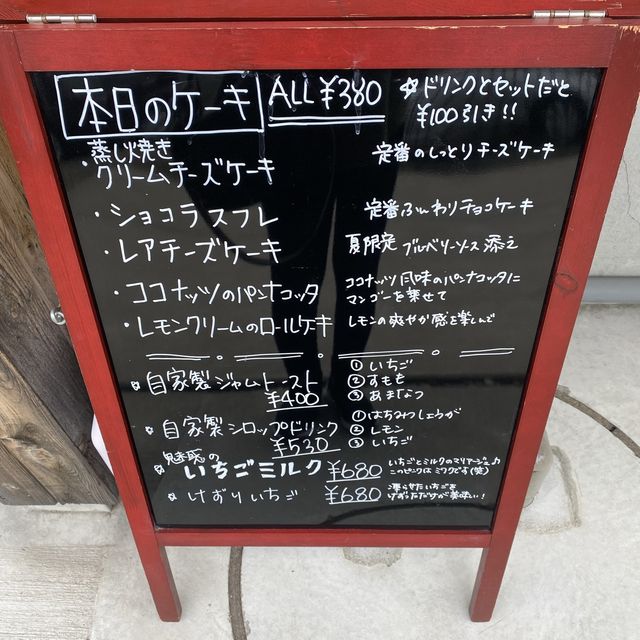 本日のケーキ ALL ¥380 ☆ドリンクとセットだと
¥100引き!!
・蒸し焼き
クリームチーズケーキ 定番のしっとりチーズケーキ
・ショコラスフレ 定番ふんわりチョコケーキ
・レアチーズケーキ 夏限定 ブルベリーソース添え
・ココナッツのパンナコッタ ココナッツ風味のパンナコッタに
マンゴーを乗せて
・レモンクリームのロールケーキ レモンの爽やか感を楽しんで
☆自家製ジャムトースト ¥400
①いちご
②すもも
③あまなつ
☆自家製シロップドリンク ¥530
①はちみつしょうが
②レモン
③いちご
魅惑の
☆いちごミルク ¥680 いちごとミルクのマリアージュ♪
このピンクはミワクです(笑)
☆けずりいちご ¥680 凍らせたいちごを
けずっただけが美味い!